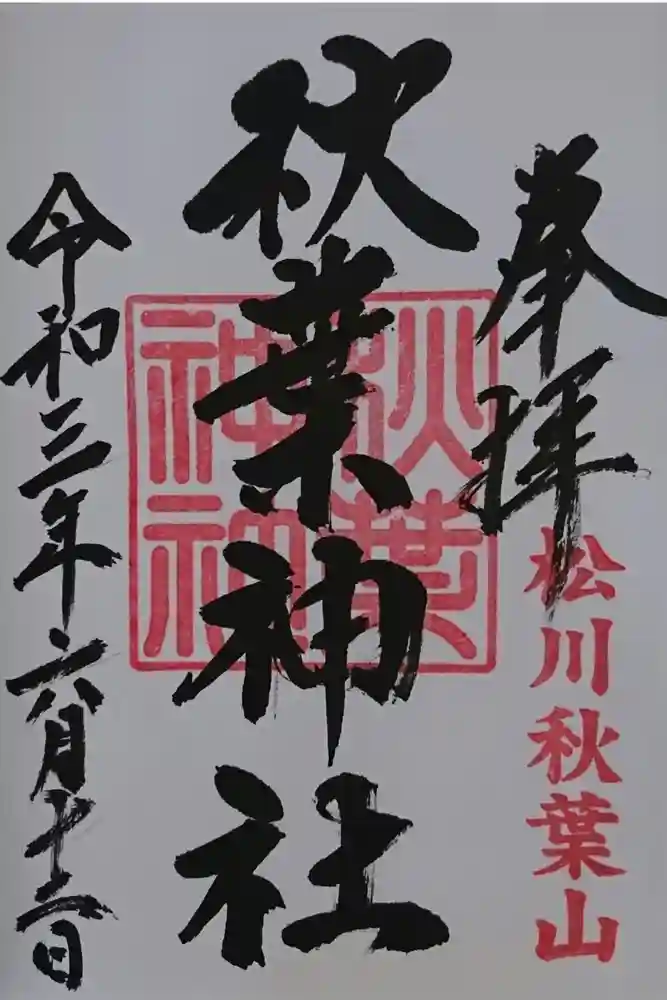 奉拝
松川秋葉山
秋葉神社
秋葉
神社
令和三年六月十二日